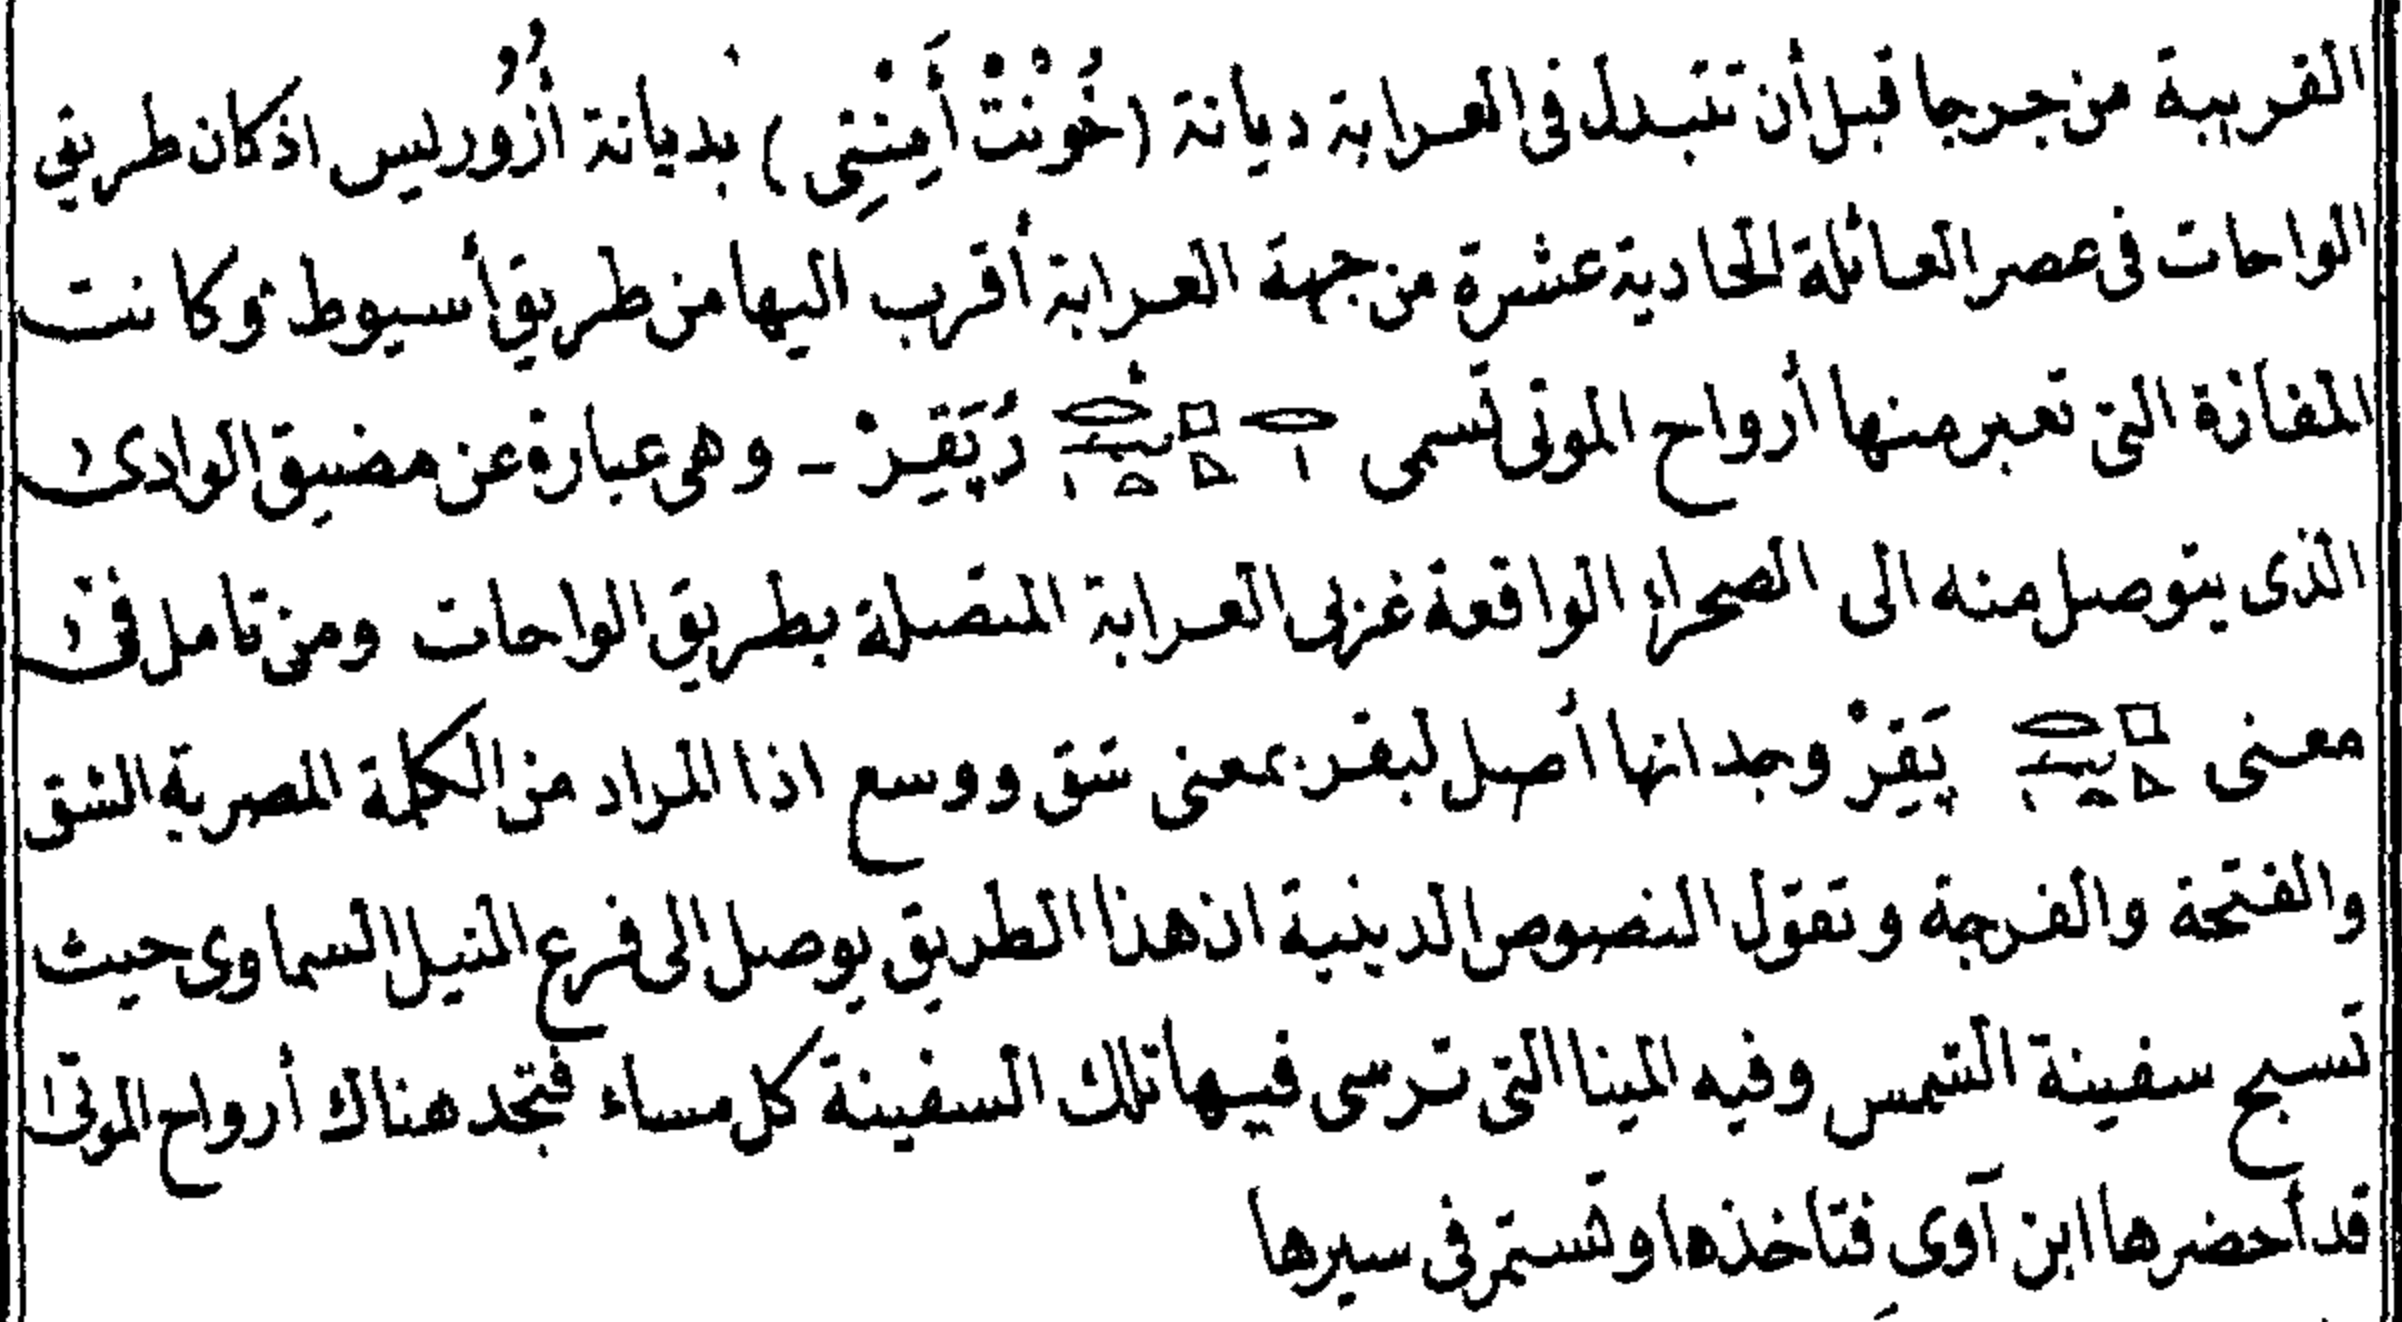 القريبة من جرجا قبل أن تتبدل فى العرابة ديانة (خُونْتْ أَمِنْتِى) بديانة أُزُوريس اذ كان طريق
الواحات فى عصر العائلة الحادية عشرة من جهة العرابة أقرب اليها من طريق أسيوط وكانت
المفازة التى تعبر منها أرواح الموتى تسمى رُپَقِرْ - وهى عبارة عن مضيق الوادى
الذى يتوصل منه الى الصحراء الواقعة غربى العرابة المتصلة بطريق الواحات ومن تامل فى
معنى پَقِرْ وجد انها أصل لبقر بمعنى شق ووسع اذا المراد من الكلمة المصرية الشق
والفتحة والفرجة وتقول النصوص الدينية ان هذا الطريق يوصل الى فرع النيل السماوى حيث
تسبح سفينة الشمس وفيه المينا التى ترسى فيها تلك السفينة كل مساء فتجد هناك أرواح الموتى
قد أحضرها ابن آوى فتاخذها وتستمر فى سيرها